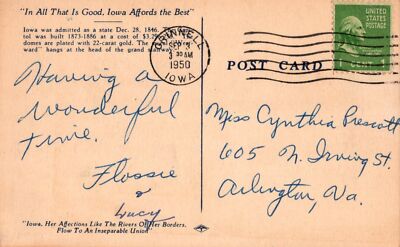 "In All That Is Good, Iowa Affords the Best"
Iowa was admitted as a state Dec. 28, 1846.
tol was built 1873-1886 at a cost of
domes are plated with 22-carat gold. The
ward" hangs at the head of the grand
GRINNELL
SEP 3
30 AM
1950
IOWA
UNITED STATES
POSTAGE
1 CENT 1
POST CARD
Having a
wonderful
time.
Flossie
&
Lucy
Miss Cynthia Prescott
605 N. Irving St.
Arlington, Va.
"Iowa, Her Affections Like The Rivers Of Her Borders.
Flow To An Inseparable Union"